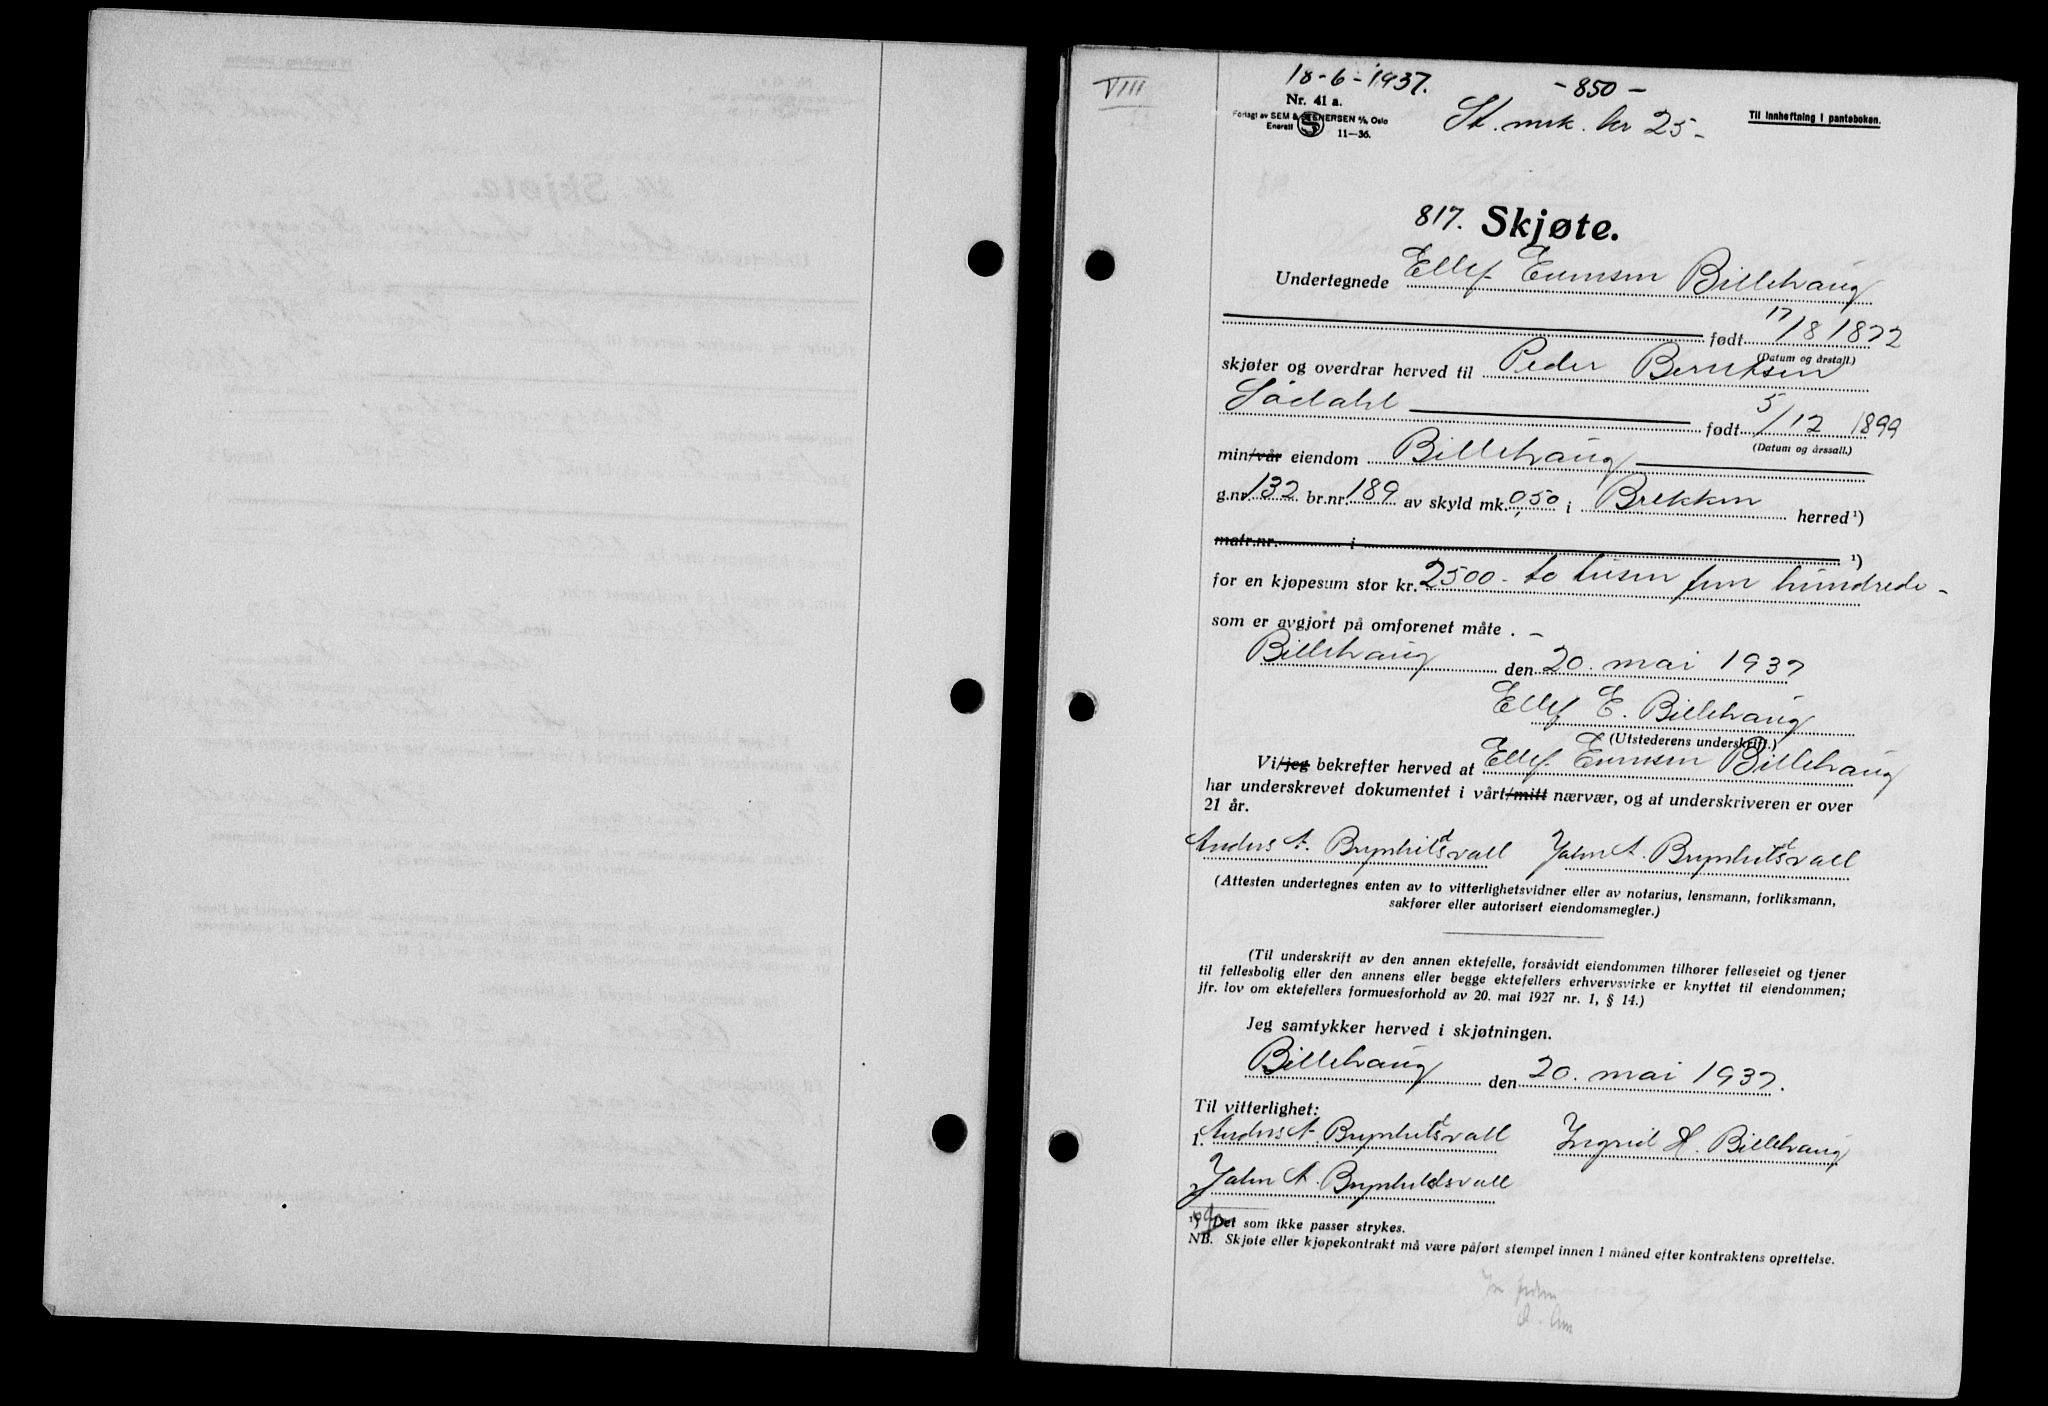 VIII
18-6-1937. - 850 -
Nr. 41 a.
St. mrk. kr 25-
Til innheftning i panteboken.
Forlagt av SEM & STENERSEN A/S, Oslo
Enerett S 11—36.
817. Skjøte.
Undertegnede Ellef Eumsen Billehaug
født 17/8 1872
(Datum og årstall.)
skjøter og overdrar herved til Peder Berntsen
Södahl født 5/12 1899
(Datum og årssall.)
min/vår eiendom Billehaug
g.nr 132 br.nr. 189 av skyld mk. 0,50 i Brekken herred ¹)
matr.nr. i ¹)
for en kjøpesum stor kr. 2500 - to tusen fem hundrede -
som er avgjort på omforenet måte . -
Billehaug den 20. mai 1937
Ellef E. Billehaug
(Utstederens underskrift.)
Vi/jeg bekrefter herved at Ellef Eumsen Billehaug
har underskrevet dokumentet i vårt/mitt nærvær, og at underskriveren er over
21 år.
Anders A. Brynhildsvall Jahn A. Brynhildsvall
(Attesten undertegnes enten av to vitterlighetsvidner eller av notarius, lensmann, forliksmann,
sakfører eller autorisert eiendomsmegler.)
(Til underskrift av den annen ektefelle, forsåvidt eiendommen tilhører felleseiet og tjener
til fellesbolig eller den annens eller begge ektefellers erhvervsvirke er knyttet til eiendommen;
jfr. lov om ektefellers formuesforhold av 20. mai 1927 nr. 1, § 14.)
Jeg samtykker herved i skjøtningen.
Billehaug den 20. mai 1937.
Til vitterlighet:
1. Anders A. Brynhildsvall Ingrid H. Billehaug
2 Jahn A. Brynhildsvall
¹) Det som ikke passer strykes.
NB. Skjøte eller kjøpekontrakt må være påført stempel innen 1 måned efter kontraktens oprettelse.